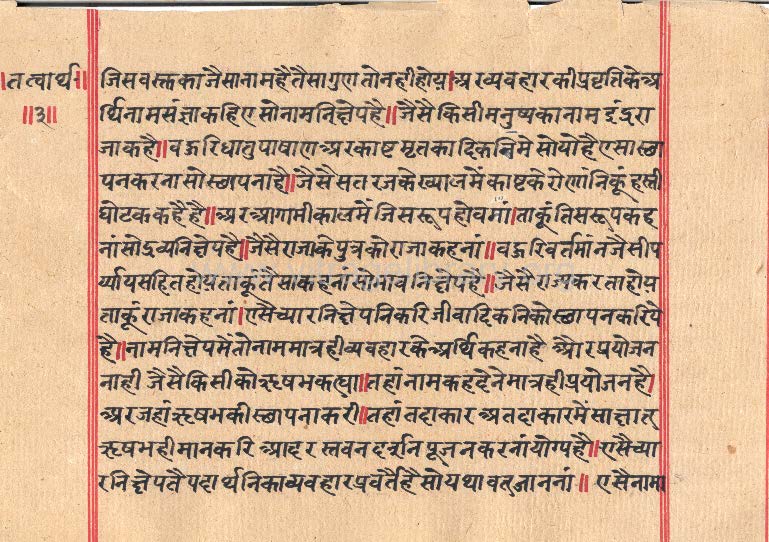 ॥तत्वार्थ॥
॥३॥
जिसवस्तकाजैसानामहैतैसागुणतोनहीहोय॥अरव्यवहारकीप्रवृतिकेअ
र्थिनामसंज्ञाकहिएसोनामनिक्षेपहै॥जैसैकिसीमनुष्यकानामइंद्ररा
जाकहै॥बहुरिधातुपाषाणअरकाष्टमृतकादिकनिमेसोयोहैएसास्छा
पनकरनासोस्छापनाहै॥जैसैसतरजकेख्यालमेंकाष्टकेरोणांनिकूंहस्ती
घोटककहैहै॥अरआगामीकालमेंजिसरूपहोयगां॥ताकूंतिसरूपकह
नांसोद्रव्यनिक्षेपहै॥जैसैराजाकेपुत्रकोराजाकहनां॥बहुरिवर्तमांनजैसीप
र्य्यायसहितहोयताकूंतैसाकहनांसोभावनिक्षेपहै॥जैसैराज्यकरताहोय
ताकूंराजाकहनां॥एसैच्यारनिक्षेपनिकरिजीवादिकनिकोस्छापनकरिये
है॥नामनिक्षेपमेंतोनाममात्रहीव्यवहारकेअर्थिकहनाहै औरप्रयोजन
नाही जैसैकिसीकोऋषभकह्या॥तहांनामकहदेनेमात्रहीप्रयोजनहै॥
अरजहांऋषभकीस्छापनाकरी॥तहांतदाकारअतदाकारमेंसाक्षात्
ऋषभहीमानकरिआदरस्तवनदर्शनपूजनकरनांयोग्यहै॥एसैच्या
रनिक्षेपतैपदार्थनिकाव्यवहारप्रवर्तैहैसोयथावत्जाननां॥ एसैनामा